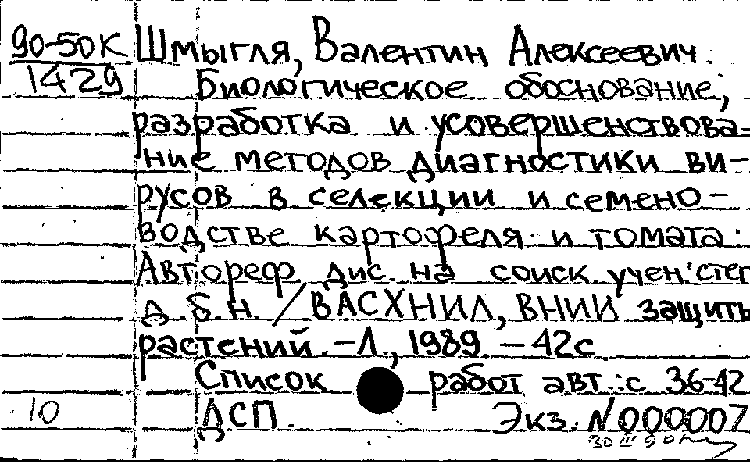 90-50К Шмыгля, Валентин Алексеевич.
1429 Биологическое обоснование,
разработка и усовершенствова-
ние методов диагностики ви-
русов в селекции и семено-
водстве картофеля и томата:
Автореф. дис. на соиск. учен. степ.
д. б. н. / ВАСХНИЛ, ВНИИ защиты
растений. -Л., 1989. -42с.
Список работ авт.: с. 36-42
10 ДСП. Экз. N000007